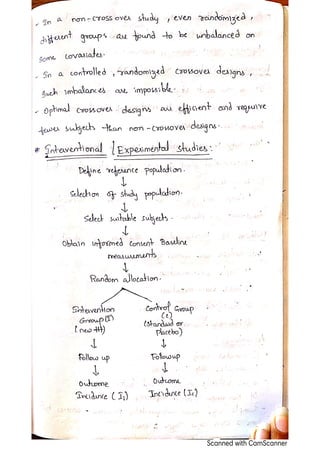 - In a non-cross over study, even randomized,
different groups are found to be unbalanced on
some covariates.
- In a controlled, randomized crossover designs,
such imbalances are impossible.
- Optimal crossover designs are efficient and require
fewer subjects than non-crossover designs.
* Interventional / Experimental studies:
Define reference population.
↓
Selection of study population.
↓
Select suitable subjects.
↓
Obtain informed consent Baseline
measurements
↓
Random allocation.
Intervention Control Group
Group (I) (c)
(new ttt) (standard or
Placebo)
↓ ↓
Follow up Followup
↓ ↓
Outcome Outcome
Incidence (I₁) Incidence (I₂)
Scanned with CamScanner